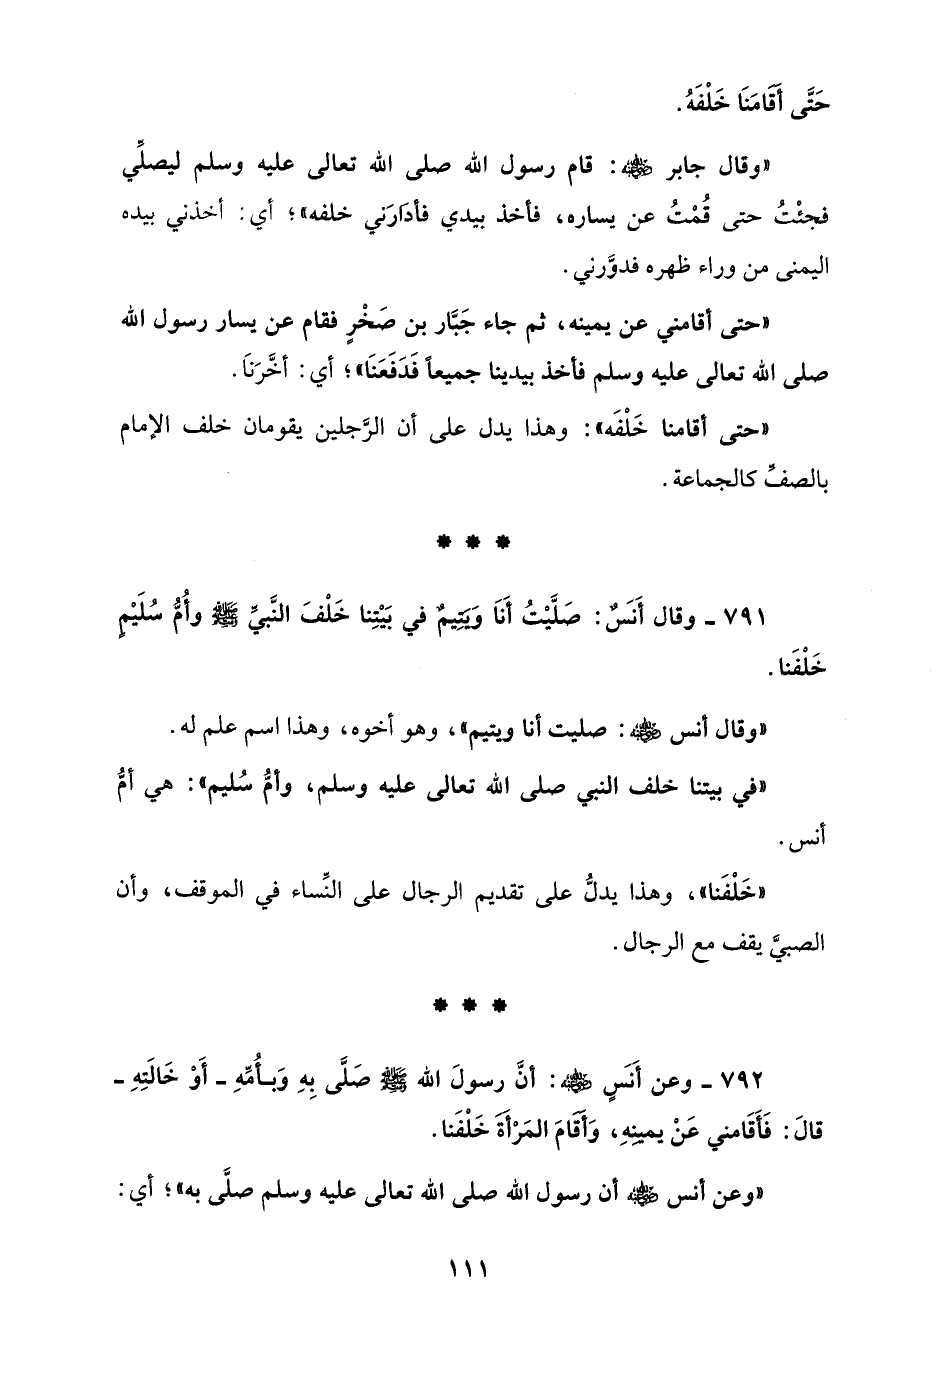 حَتَّى أَقَامَنَا خَلْفَهُ.
«وقال جابر ﵁: قام رسول الله صلى الله تعالى عليه وسلم ليصلِّي
فجئْتُ حتى قُمْتُ عن يساره، فأخذ بيدي فأدَارَني خلفه»؛ أي: أخذني بيده
اليمنى من وراء ظهره فدوَّرني.
«حتى أقامني عن يمينه، ثم جاء جَبَّار بن صَخْرٍ فقام عن يسار رسول الله
صلى الله تعالى عليه وسلم فأخذ بيدينا جميعاً فَدَفَعَنَا»؛ أي: أخَّرَنَا.
«حتى أقامنا خَلْفَه»: وهذا يدل على أن الرَّجلين يقومان خلف الإمام
بالصفِّ كالجماعة.
* * *
٧٩١ ـ وقال أَنَسٌ: صَلَّيْتُ أَنَا وَيَتِيمٌ في بَيْتِنا خَلْفَ النَّبيِّ ﷺ وأُمُّ سُلَيْمٍ
خَلْفَنا.
«وقال أنس ﵁: صليت أنا ويتيم»، وهو أخوه، وهذا اسم علم له.
«في بيتنا خلف النبي صلى الله تعالى عليه وسلم، وأمُّ سُليم»: هي أمُّ
أنس.
«خَلْفَنا»، وهذا يدلُّ على تقديم الرجال على النِّساء في الموقف، وأن
الصبيَّ يقف مع الرجال.
* * *
٧٩٢ ـ وعن أَنَسٍ ﵁: أنَّ رسولَ الله ﷺ صَلَّى بِهِ وَبأُمِّهِ ـ أَوْ خَالَتِهِ ـ
قالَ: فَأَقَامني عَنْ يمينِهِ، وَأَقَامَ المَرْأَةَ خَلْفَنا.
«وعن أنس ﵁ أن رسول الله صلى الله تعالى عليه وسلم صلَّى به»؛ أي:
١١١